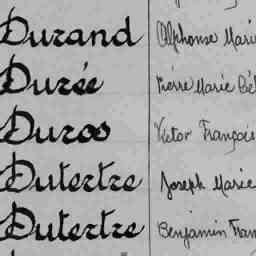 Durand Alphonse Marie
Durée Pierre Marie
Duros Victor François
Dutertre Joseph Marie
Dutertre Benjamin Fran